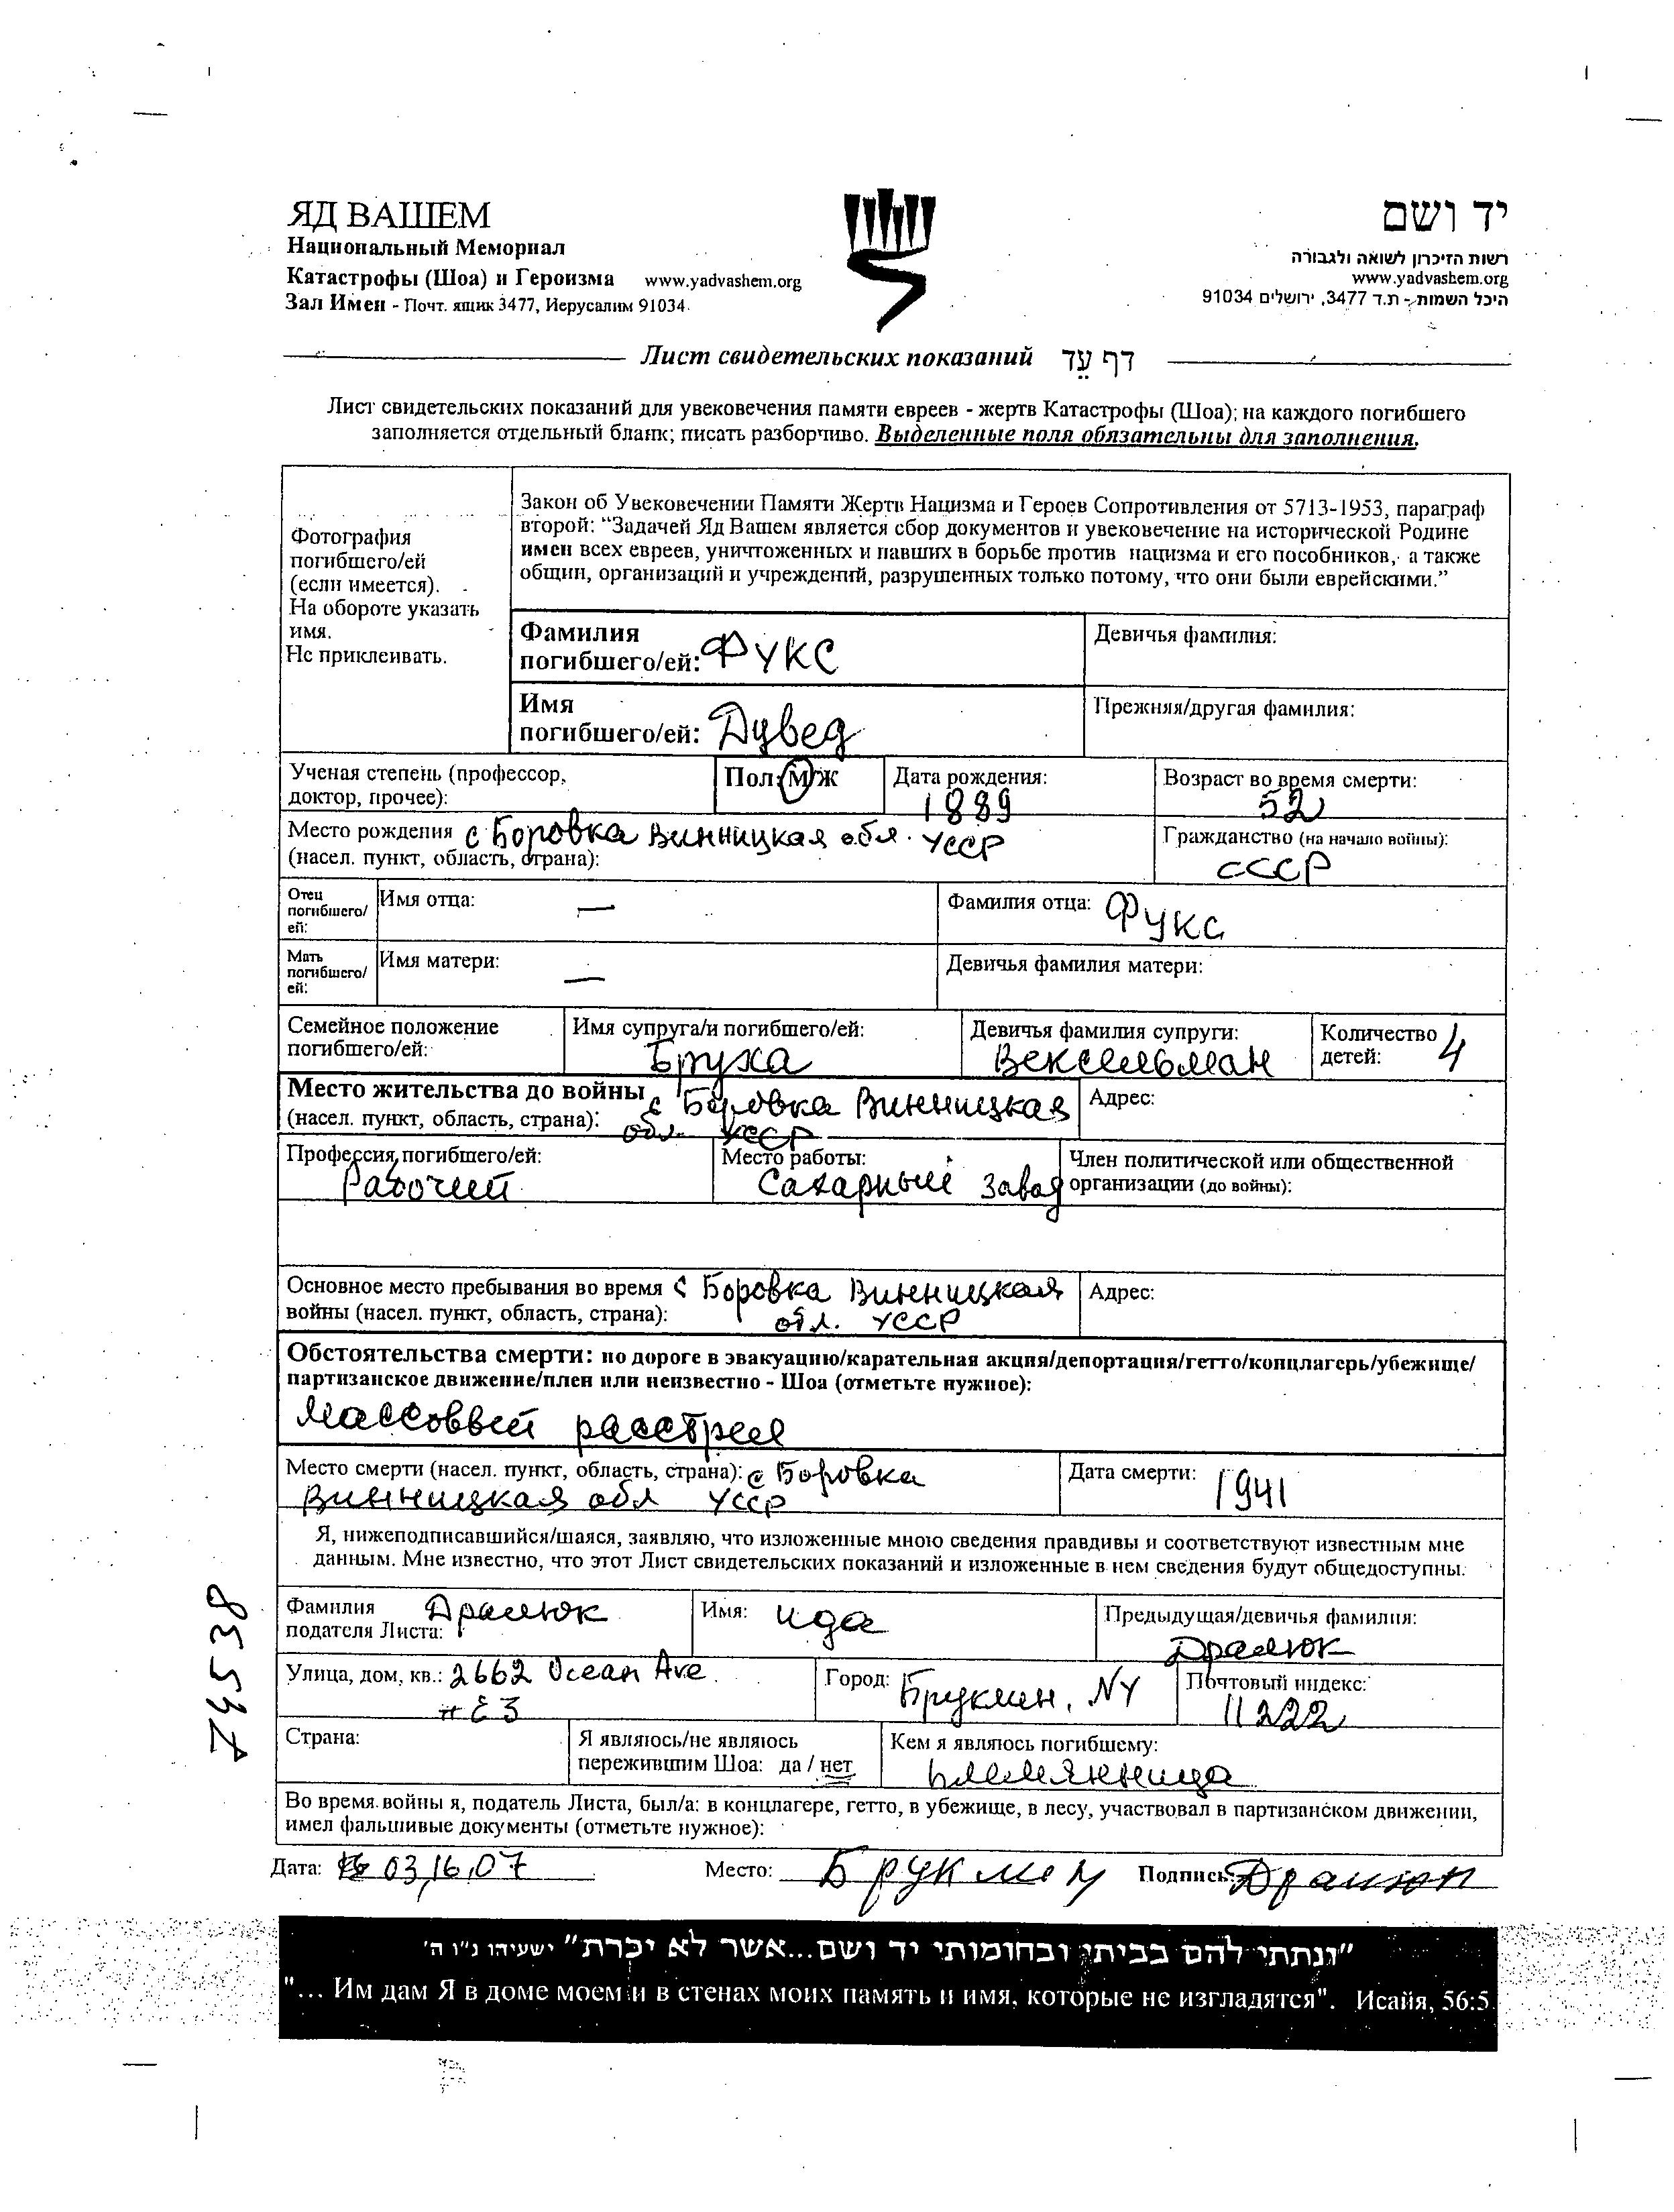 ЯД ВАШЕМ
Национальный Мемориал
Катастрофы (Шоа) и Героизма www.yadvashem.org
Зал Имен - Почт. ящик 3477, Иерусалим 91034
יד ושם
רשות הזיכרון לשואה ולגבורה
www.yadvashem.org
היכל השמות - ת.ד 3477, ירושלים 91034
Лист свидетельских показаний דף עֵד
Лист свидетельских показаний для увековечения памяти евреев - жертв Катастрофы (Шоа); на каждого погибшего
заполняется отдельный бланк; писать разборчиво. Выделенные поля обязательны для заполнения.
Фотография
погибшего/ей
(если имеется).
На обороте указать
имя.
Не приклеивать.
Закон об Увековечении Памяти Жертв Нацизма и Героев Сопротивления от 5713-1953, параграф
второй: “Задачей Яд Вашем является сбор документов и увековечение на исторической Родине
имен всех евреев, уничтоженных и павших в борьбе против нацизма и его пособников, а также
общин, организаций и учреждений, разрушенных только потому, что они были еврейскими.”
Фамилия
погибшего/ей: Фукс
Девичья фамилия:
Имя
погибшего/ей: Дувед
Прежняя/другая фамилия:
Ученая степень (профессор,
доктор, прочее):
Пол: М/Ж
Дата рождения:
1889
Возраст во время смерти:
52
Место рождения с Боровка Винницкая обл. УССР
(насел. пункт, область, страна):
Гражданство (на начало войны):
СССР
Отец
погибшего/
ей:
Имя отца: —
Фамилия отца: Фукс
Мать
погибшего/
ей:
Имя матери: —
Девичья фамилия матери:
Семейное положение
погибшего/ей:
Имя супруга/и погибшего/ей:
Бруха
Девичья фамилия супруги:
Вексельман
Количество
детей: 4
Место жительства до войны с Боровка Винницкая
(насел. пункт, область, страна): обл. УССР
Адрес:
Профессия погибшего/ей:
Рабочий
Место работы:
Сахарный завод
Член политической или общественной
организации (до войны):
Основное место пребывания во время с Боровка Винницкая
войны (насел. пункт, область, страна): обл. УССР
Адрес:
Обстоятельства смерти: по дороге в эвакуацию/карательная акция/депортация/гетто/концлагерь/убежище/
партизанское движение/плен или неизвестно - Шоа (отметьте нужное):
Массовый расстрел
Место смерти (насел. пункт, область, страна): с Боровка
Винницкая обл УССР
Дата смерти: 1941
Я, нижеподписавшийся/шаяся, заявляю, что изложенные мною сведения правдивы и соответствуют известным мне
данным. Мне известно, что этот Лист свидетельских показаний и изложенные в нем сведения будут общедоступны.
Фамилия
подателя Листа: Дралюк
Имя: Ида
Предыдущая/девичья фамилия:
Дралюк
Улица, дом, кв.: 2662 Ocean Ave
# E3
Город: Бруклин, NY
Почтовый индекс:
11222
Страна:
Я являюсь/не являюсь
пережившим Шоа: да / нет
Кем я являюсь погибшему:
племянница
Во время войны я, податель Листа, был/а: в концлагере, гетто, в убежище, в лесу, участвовал в партизанском движении,
имел фальшивые документы (отметьте нужное):
Дата: 03,16,07
Место: Бруклин
Подпись: Дралюк
"ונתתי להם בביתי ובחומותי יד ושם...אשר לא יכרת" ישעיהו נ"ו ה'
"... Им дам Я в доме моем и в стенах моих память и имя, которые не изгладятся". Исайя, 56:5